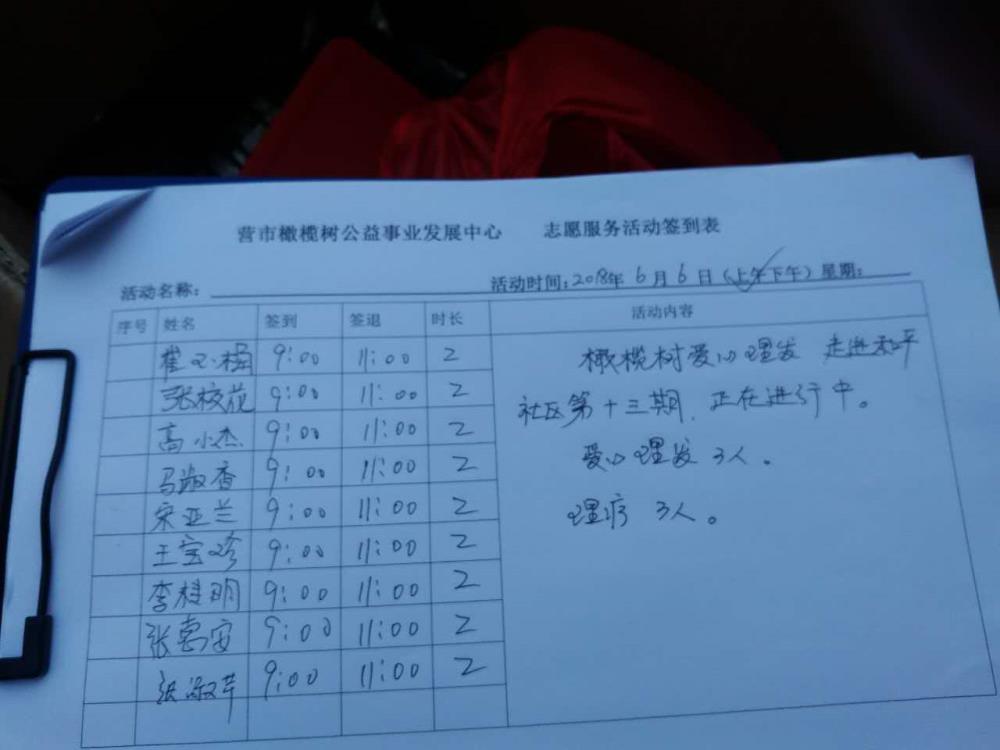 营市橄榄树公益事业发展中心 志愿服务活动签到表
活动名称： 活动时间：2018年 6月 6日（上午下午）星期：
序号 姓名 签到 签退 时长 活动内容
9:00 11:00 2
张校花 9:00 11:00 2
高小杰 9:00 11:00 2
马淑香 9:00 11:00 2
宋亚兰 9:00 11:00 2
王宝珍 9:00 11:00 2
李桂明 9:00 11:00 2
张惠安 9:00 11:00 2
张淑芹 9:00 11:00 2
橄榄树爱心理发 走进和平
社区第十三期，正在进行中。
爱心理发3人。
理疗 3人。